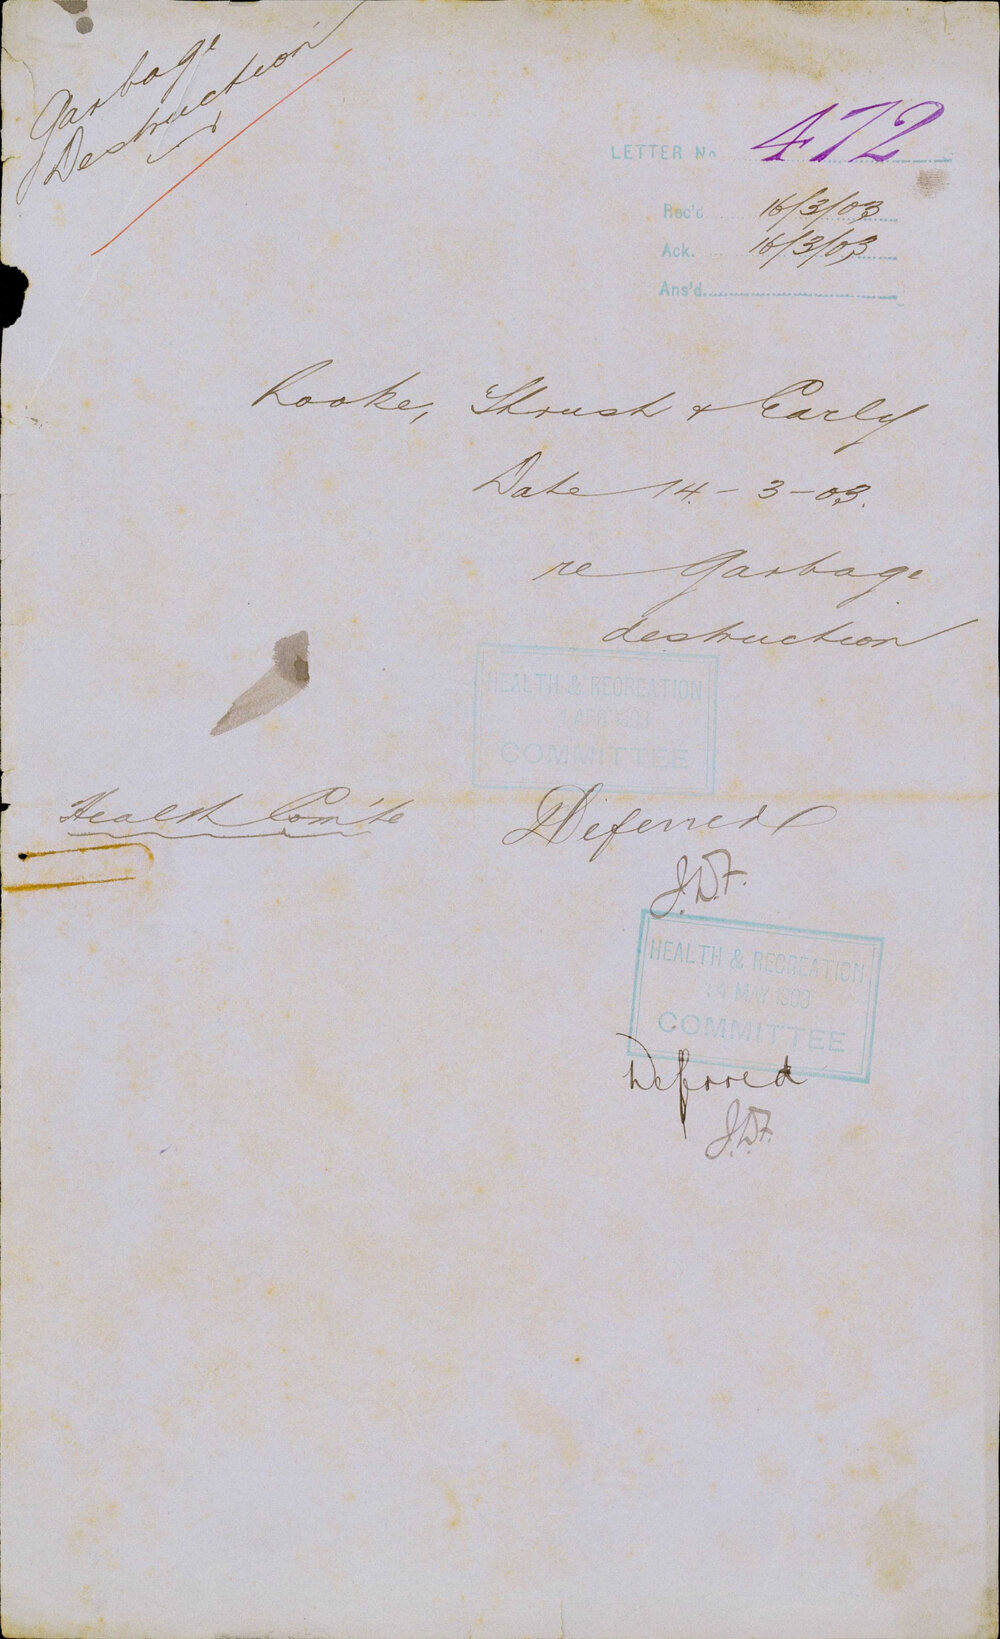 Garbage
Destruction
LETTER No 472
Rec'd 16/3/03
Ack. 16/3/03
Ans'd
Cooke, Thrush & Early
Date 14-3-03.
re Garbage
destruction
HEALTH & RECREATION
APR 1903
COMMITTEE
Health Com'te
Deferred
J.D.F.
HEALTH & RECREATION
14 MAY 1903
COMMITTEE
Deferred
J.D.F.